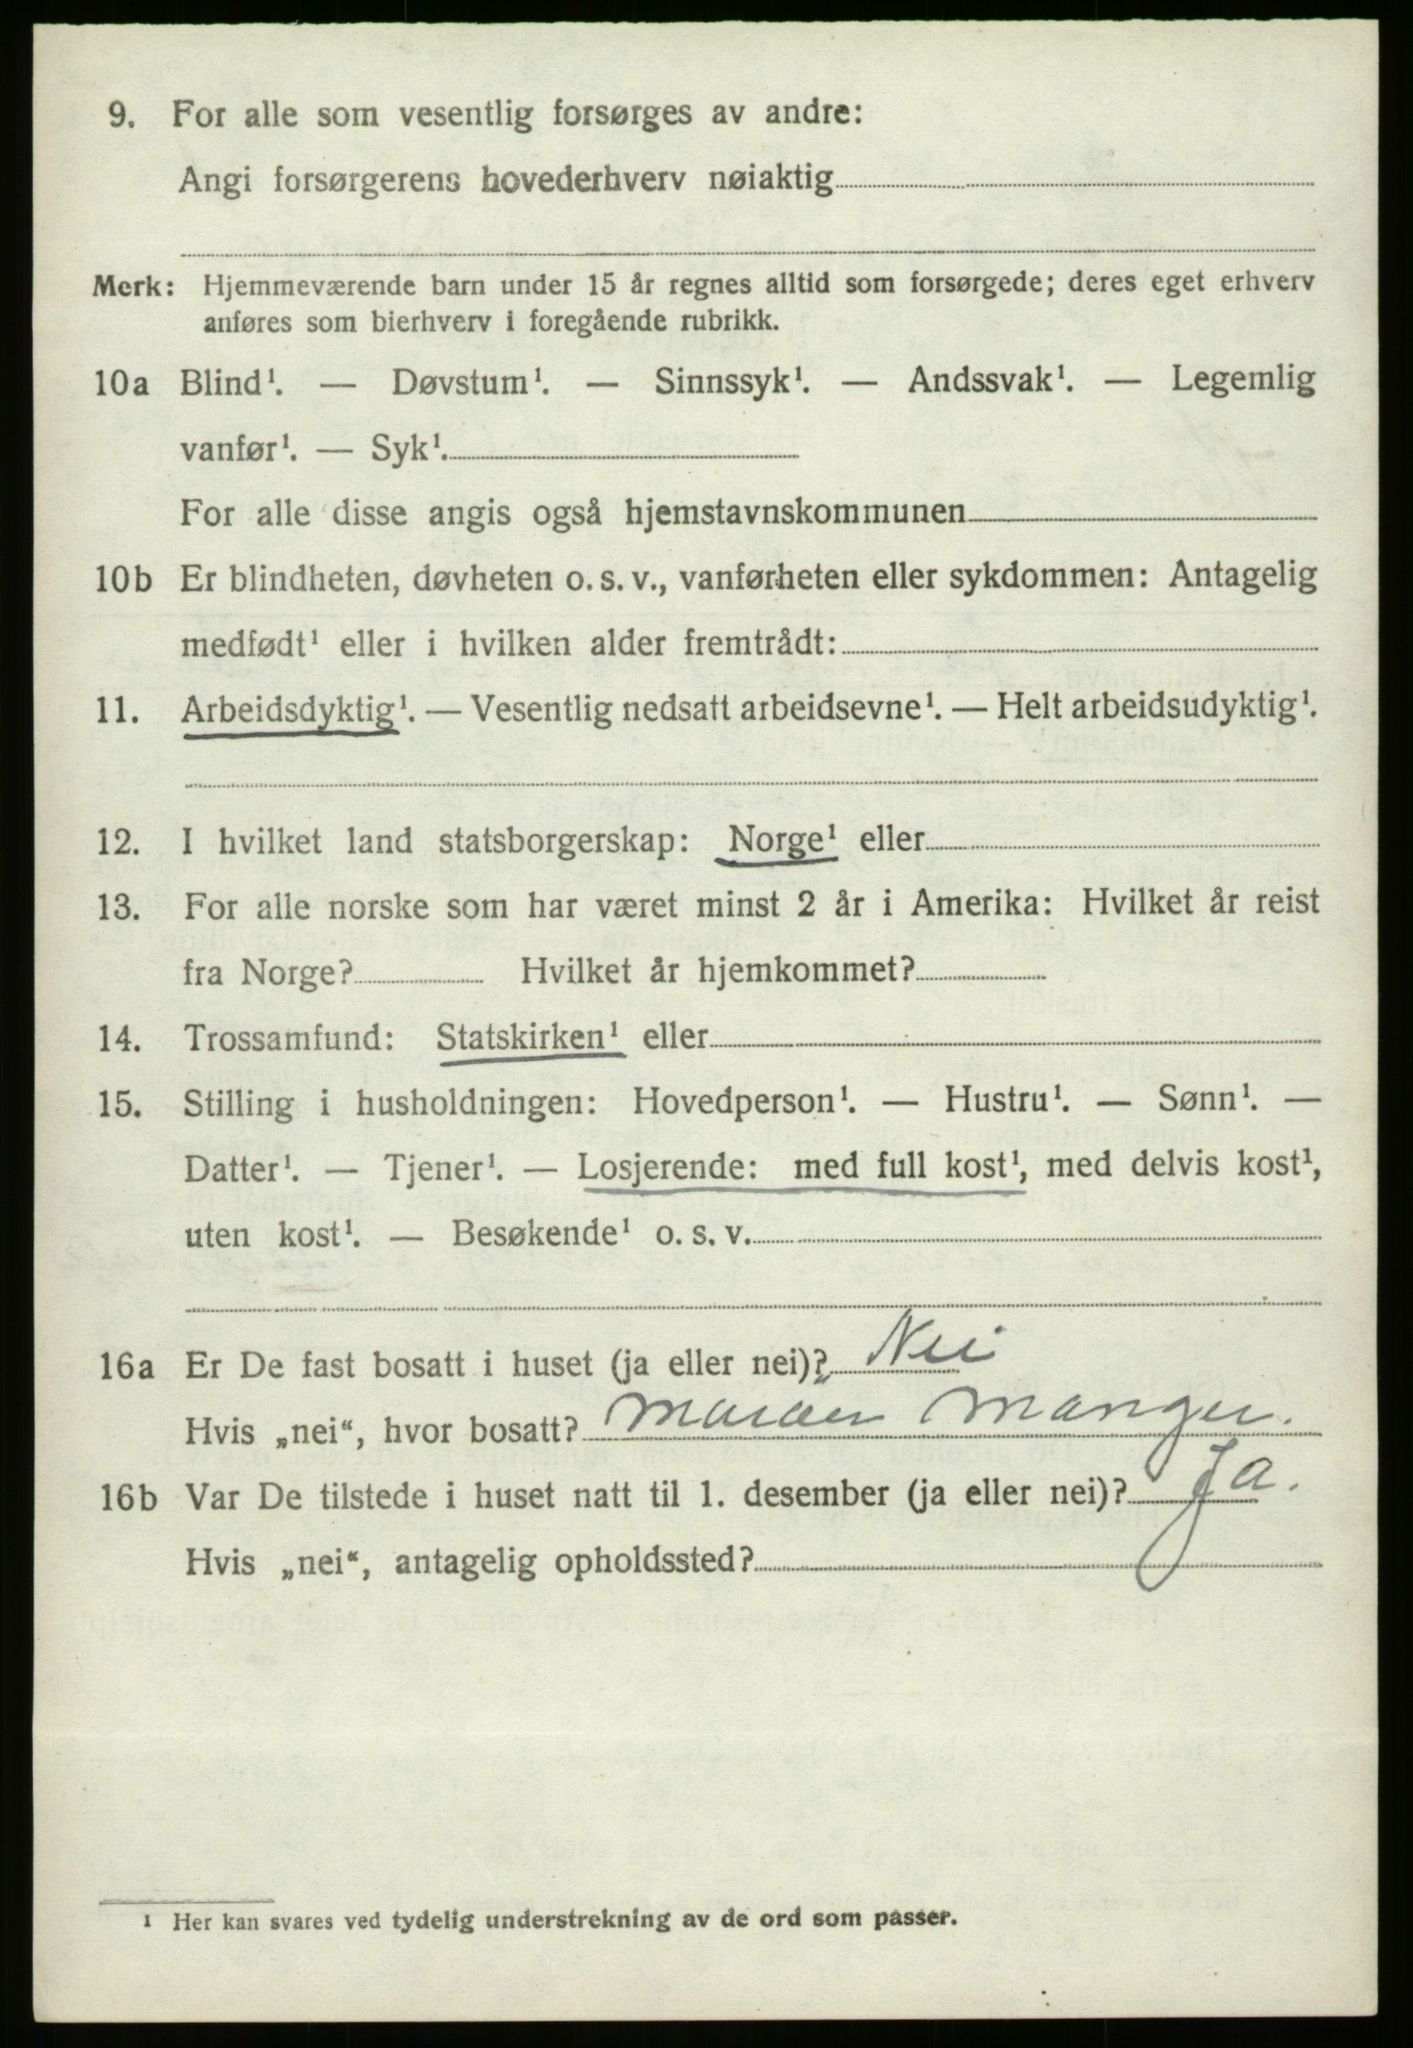 9. For alle som vesentlig forsørges av andre:
Angi forsørgerens hovederhverv nøiaktig
Merk: Hjemmeværende barn under 15 år regnes alltid som forsørgede; deres eget erhverv
anføres som bierhverv i foregående rubrikk.
10a Blind¹. — Døvstum¹. — Sinnssyk¹. — Andssvak¹. — Legemlig
vanfør¹. — Syk¹.
For alle disse angis også hjemstavnskommunen
10b Er blindheten, døvheten o. s. v., vanførheten eller sykdommen: Antagelig
medfødt¹ eller i hvilken alder fremtrådt:
11. Arbeidsdyktig¹. — Vesentlig nedsatt arbeidsevne¹. — Helt arbeidsudyktig¹.
12. I hvilket land statsborgerskap: Norge¹ eller
13. For alle norske som har været minst 2 år i Amerika: Hvilket år reist
fra Norge? Hvilket år hjemkommet?
14. Trossamfund: Statskirken¹ eller
15. Stilling i husholdningen: Hovedperson¹. — Hustru¹. — Sønn¹. —
Datter¹. — Tjener¹. — Losjerende: med full kost¹, med delvis kost¹,
uten kost¹. — Besøkende¹ o. s. v.
16a Er De fast bosatt i huset (ja eller nei)? Nei
Hvis „nei“, hvor bosatt? Manger.
16b Var De tilstede i huset natt til 1. desember (ja eller nei)? Ja.
Hvis „nei“, antagelig opholdssted?
¹ Her kan svares ved tydelig understrekning av de ord som passer.